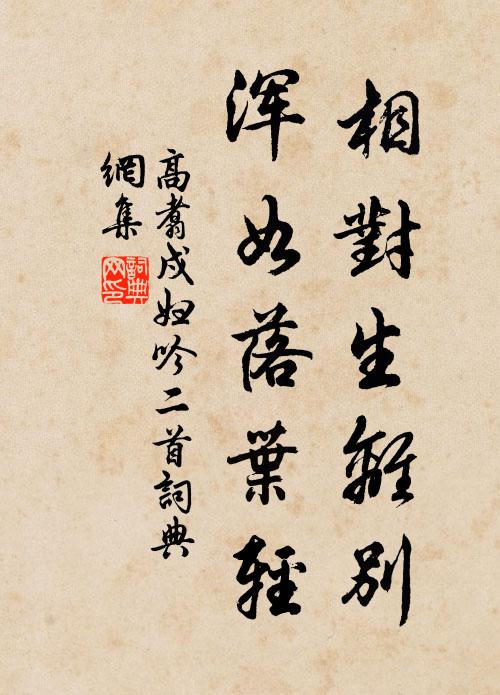 相對生離別
渾如落葉輕
高翥戍婦吟二首詞典
網集
詞典
網印